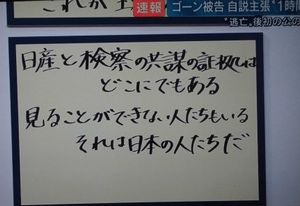 これが
速報 ゴーン被告 自説主張 "1時
"逃亡"後初の公の
日産と検察の共謀の証拠は
どこにでもある
見ることができない人たちもいる
それは日本の人たちだ